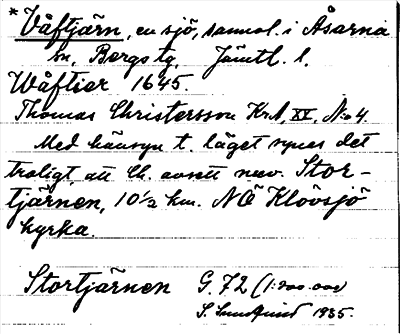 * Våftjärn, en sjö, sannol. i Åsarna
sn, Bergs tg, Jämtl. l.
Wåftier 1645.
Thomas Christersson Kr.A, XV, No 4.
Med hänsyn t. läget synes det
troligt, att Ch. avsett nuv. Stor-
tjärnen, 10 1/2 km. NÖ Klövsjö
kyrka.
Stortjärnen G. 72 (1:200.000)
S. Lundqvist 1935.